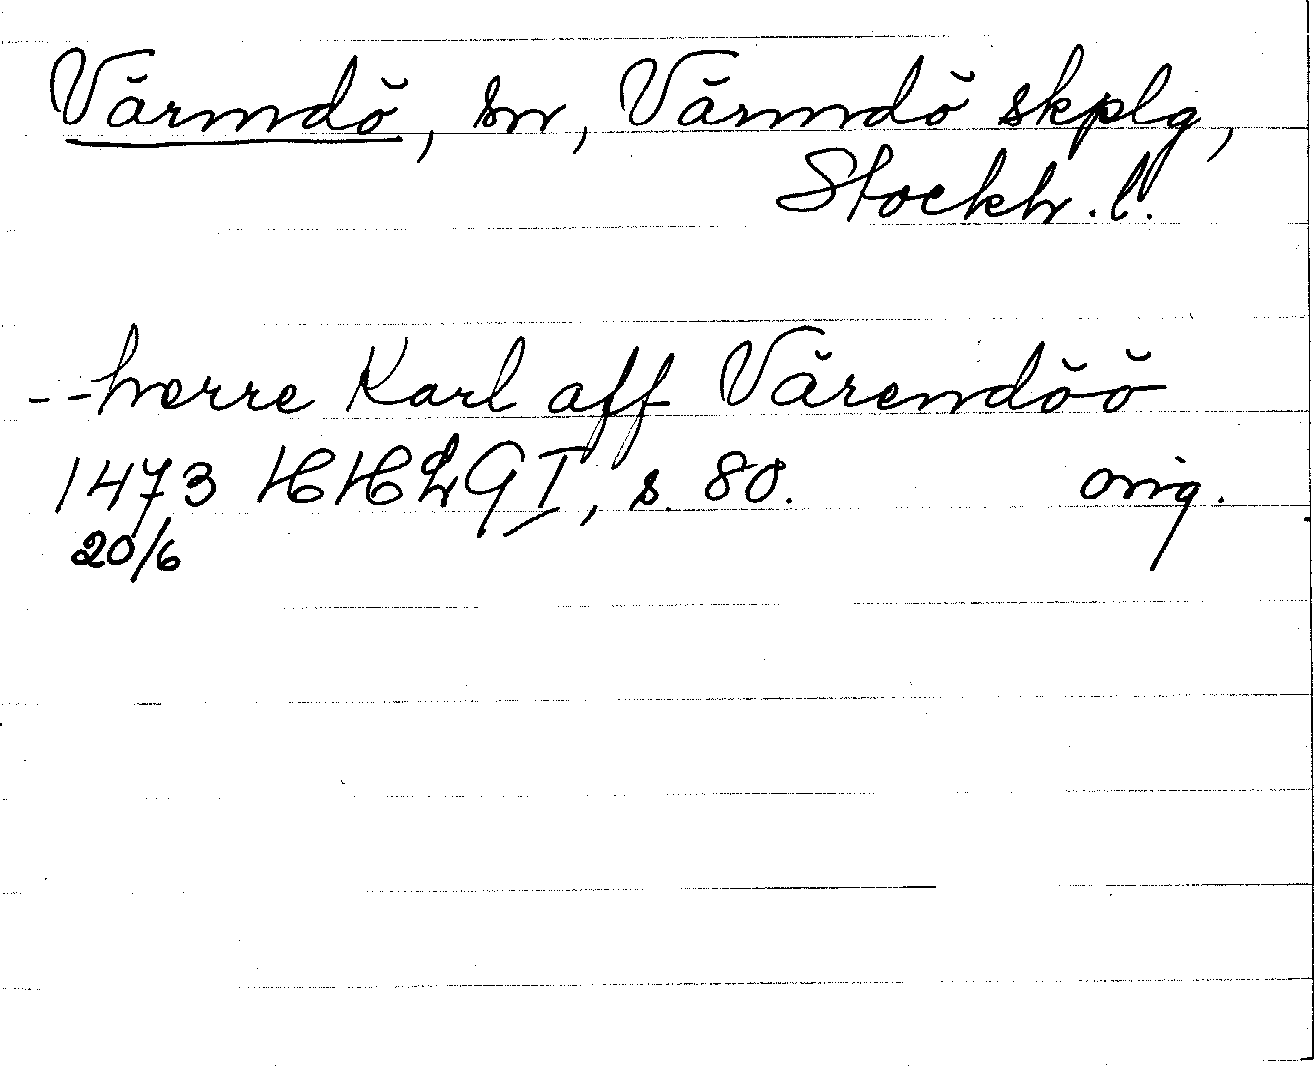 Värmdö, sn, Värmdö skplg,
Stockh. l.
-- herre Karl aff Värendöö
1473 HHLG I, s. 80. orig.
20/6